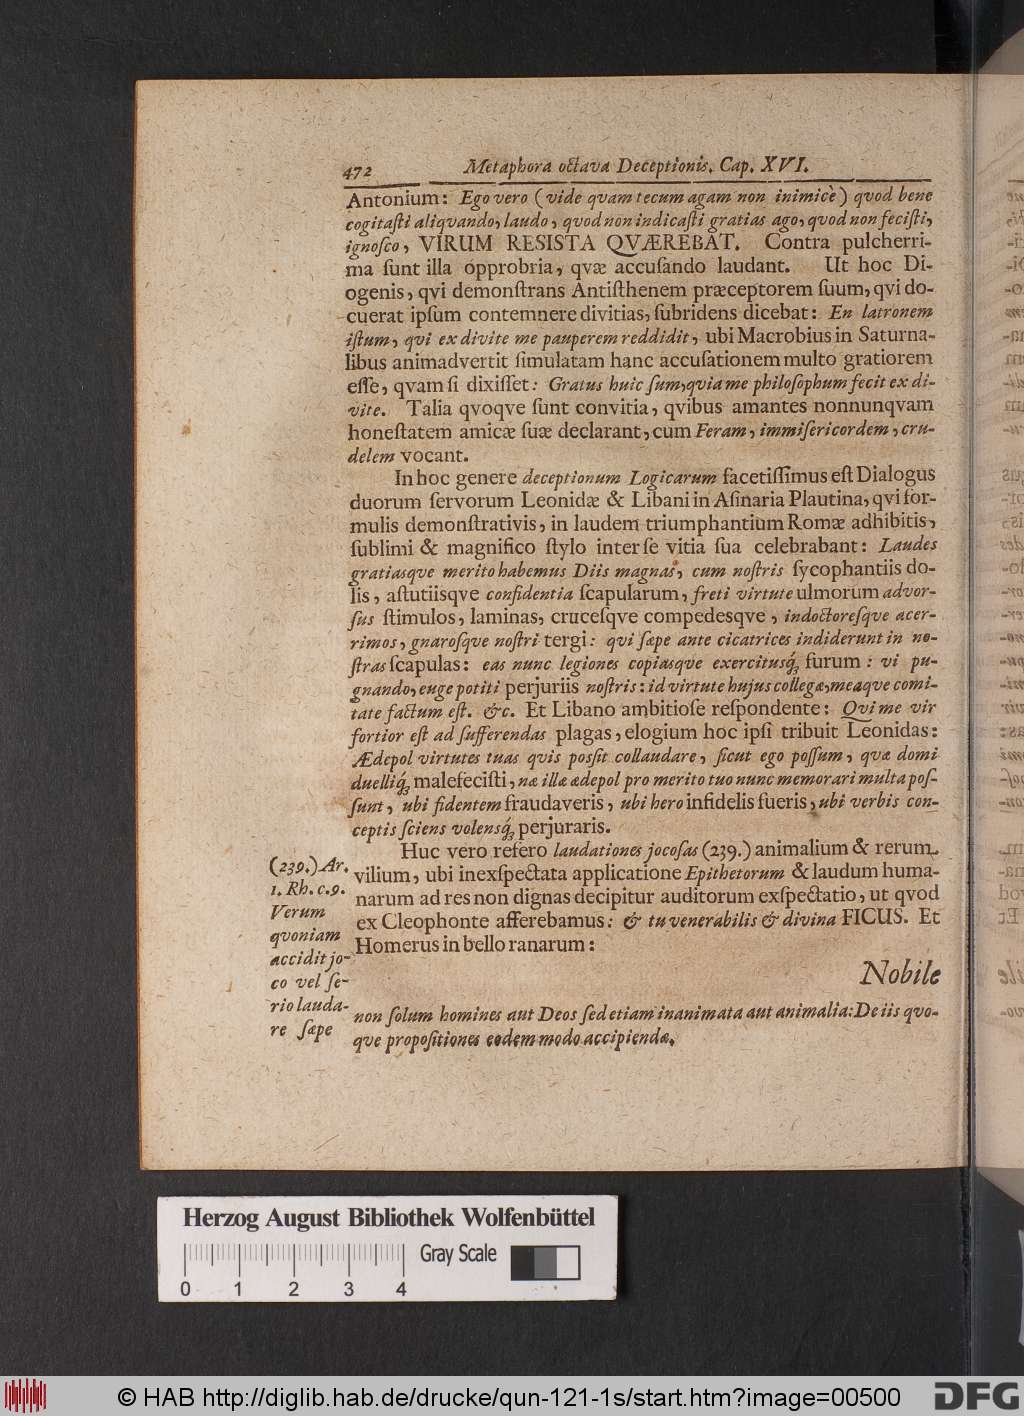 472 Metaphora octava Deceptionis. Cap. XVI.
Antonium: Ego vero (vide qvam tecum agam non inimicè) qvod bene
cogitaſti aliqvando, laudo, qvod non indicaſti gratias ago, qvod non feciſti,
ignoſco, VIRUM RESISTA QVÆREBAT. Contra pulcherri-
ma ſunt illa opprobria, qvæ accuſando laudant. Ut hoc Di-
ogenis, qvi demonſtrans Antiſthenem præceptorem ſuum, qvi do-
cuerat ipſum contemnere divitias, ſubridens dicebat: En latronem
iſtum, qvi ex divite me pauperem reddidit, ubi Macrobius in Saturna-
libus animadvertit ſimulatam hanc accuſationem multo gratiorem
eſſe, qvam ſi dixiſſet: Gratus huic ſum, qvia me philoſophum fecit ex di-
vite. Talia qvoqve ſunt convitia, qvibus amantes nonnunqvam
honeſtatem amicæ ſuæ declarant, cum Feram, immiſericordem, cru-
delem vocant.
In hoc genere deceptionum Logicarum facetiſſimus eſt Dialogus
duorum ſervorum Leonidæ & Libani in Aſinaria Plautina, qvi for-
mulis demonſtrativis, in laudem triumphantium Romæ adhibitis,
ſublimi & magnifico ſtylo inter ſe vitia ſua celebrabant: Laudes
gratiasqve merito habemus Diis magnas, cum noſtris ſycophantiis do-
lis, aſtutiisqve confidentia ſcapularum, freti virtute ulmorum adver-
ſus ſtimulos, laminas, cruceſqve compedesqve, indoctoreſqve acer-
rimos, gnaroſqve noſtri tergi: qui ſæpe ante cicatrices indiderunt in no-
ſtras ſcapulas: eas nunc legiones copiasqve exercitusq́; furum: vi pu-
gnando, euge potiti perjuriis noſtris: id virtute hujus collegæ, meaqve comi-
tate factum eſt. &c. Et Libano ambitioſe reſpondente: Qvi me vir
fortior eſt ad ſufferendas plagas, elogium hoc ipſi tribuit Leonidas:
Ædepol virtutes tuas qvis poſſit collaudare, ſicut ego poſſum, qvæ domi
duelliq́; malefeciſti, næ illæ ædepol pro merito tuo nunc memorari multa poſ-
ſunt, ubi fidentem fraudaveris, ubi hero infidelis fueris, ubi verbis con-
ceptis ſciens volensq́; perjuraris.
Huc vero refero laudationes jocoſas (239.) animalium & rerum
vilium, ubi inexſpectata applicatione Epithetorum & laudum huma-
narum ad res non dignas decipitur auditorum exſpectatio, ut qvod
ex Cleophonte afferebamus: & tu venerabilis & divina FICUS. Et
Homerus in bello ranarum:
Nobile
(239.) Ar.
1. Rh. c. 9.
Verum
qvoniam
accidit jo-
co vel ſe-
rio lauda-
re ſæpe
non ſolum homines aut Deos ſed etiam inanimata aut animalia: De iis qvo-
qve propoſitiones eodem modo accipiendæ.
Herzog August Bibliothek Wolfenbüttel
Gray Scale
0 1 2 3 4
© HAB http://diglib.hab.de/drucke/qun-121-1s/start.htm?image=00500
DFG